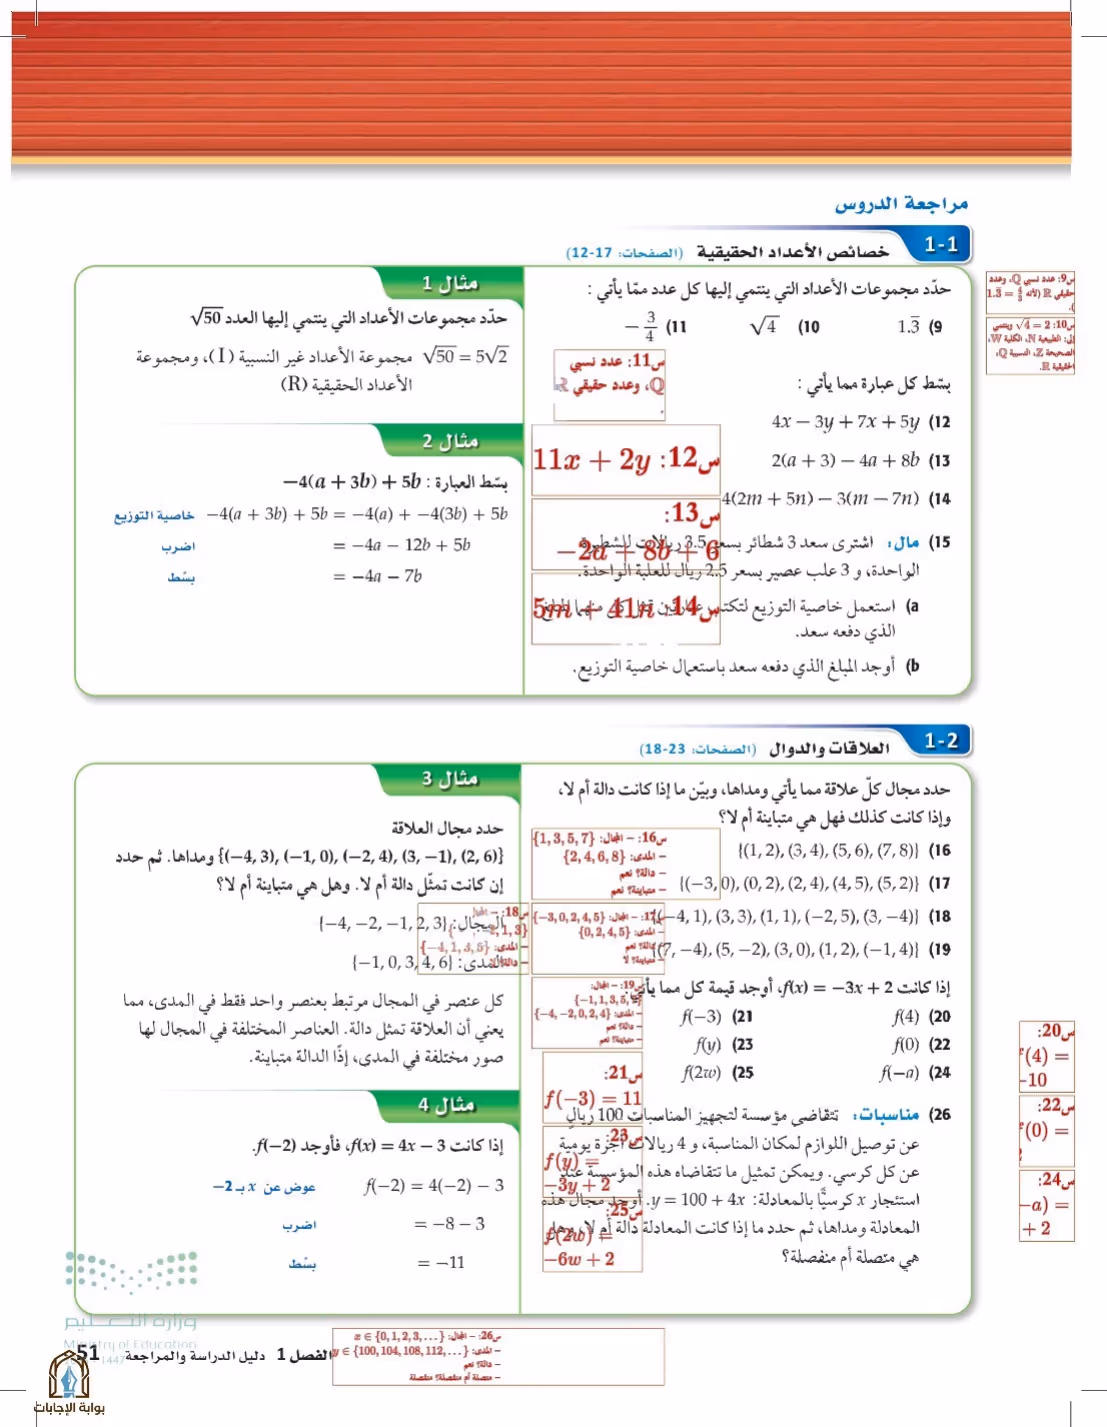 مراجعة الدروس
1-1 خصائص الأعداد الحقيقية (الصفحات: 17-12)
حدّد مجموعات الأعداد التي ينتمي إليها كل عدد ممّا يأتي :
9) 1.3̅ 10) √4 11) −3/4
س9: عدد نسبي Q، وعدد
حقيقي R (لأنه 1.3̅ = 4/3
).
س10: √4 = 2 وينتمي
إلى: الطبيعية N، الكلية W،
الصحيحة Z، النسبية Q،
الحقيقية R.
س11: عدد نسبي
Q، وعدد حقيقي R
.
بسّط كل عبارة مما يأتي :
12) 4x − 3y + 7x + 5y
س12: 11x + 2y
13) 2(a + 3) − 4a + 8b
س13:
−2a + 8b + 6
14) 4(2m + 5n) − 3(m − 7n)
س14: 5m + 41n
15) مال: اشترى سعد 3 شطائر بسعر 3.5 ريالات للشطيرة
الواحدة، و 3 علب عصير بسعر 2.5 ريال للعلبة الواحدة.
a) استعمل خاصية التوزيع لتكتب
الذي دفعه سعد.
b) أوجد المبلغ الذي دفعه سعد باستعمال خاصية التوزيع.
مثال 1
حدّد مجموعات الأعداد التي ينتمي إليها العدد √50
√50 = 5√2 مجموعة الأعداد غير النسبية (I)، ومجموعة
الأعداد الحقيقية (R)
مثال 2
بسّط العبارة : −4(a + 3b) + 5b
−4(a + 3b) + 5b = −4(a) + −4(3b) + 5b خاصية التوزيع
= −4a − 12b + 5b اضرب
= −4a − 7b بسّط
1-2 العلاقات والدوال (الصفحات: 23-18)
حدد مجال كلّ علاقة مما يأتي ومداها، وبيّن ما إذا كانت دالة أم لا،
وإذا كانت كذلك فهل هي متباينة أم لا؟
16) {(1, 2), (3, 4), (5, 6), (7, 8)}
17) {(−3, 0), (0, 2), (2, 4), (4, 5), (5, 2)}
18) {(−4, 1), (3, 3), (1, 1), (−2, 5), (3, −4)}
19) {(7, −4), (5, −2), (3, 0), (1, 2), (−1, 4)}
س16: – المجال: {1, 3, 5, 7}
– المدى: {2, 4, 6, 8}
– دالة؟ نعم
– متباينة؟ نعم
س17: – المجال: {−3, 0, 2, 4, 5}
– المدى: {0, 2, 4, 5}
– دالة؟ نعم
– متباينة؟ لا
س18: – المجال
2, 1, 3}
– المدى: {−4, 1, 3, 5}
– دالة؟ لا
س19: – المجال:
{−1, 1, 3, 5, 7}
– المدى: {−4, −2, 0, 2, 4}
– دالة؟ نعم
– متباينة؟ نعم
إذا كانت f(x) = −3x + 2، أوجد قيمة كل مما يأتي:
20) f(4) 21) f(−3)
22) f(0) 23) f(y)
24) f(−a) 25) f(2w)
س20:
f(4) =
−10
س21:
f(−3) = 11
س22:
f(0) =
2
س23:
f(y) =
−3y + 2
س24:
−a) =
+ 2
س25:
f(2w) =
−6w + 2
26) مناسبات: تتقاضى مؤسسة لتجهيز المناسبات 100 ريالٍ
عن توصيل اللوازم لمكان المناسبة، و 4 ريالات أجرة يومية
عن كل كرسي. ويمكن تمثيل ما تتقاضاه هذه المؤسسة عند
استئجار x كرسيًّا بالمعادلة: y = 100 + 4x. أوجد مجال هذه
المعادلة ومداها، ثم حدد ما إذا كانت المعادلة دالة أم لا، وهل
هي متصلة أم منفصلة؟
مثال 3
حدد مجال العلاقة
{(−4, 3), (−1, 0), (−2, 4), (3, −1), (2, 6)} ومداها. ثم حدد
إن كانت تمثّل دالة أم لا. وهل هي متباينة أم لا؟
المجال: {−4, −2, −1, 2, 3}
المدى: {−1, 0, 3, 4, 6}
كل عنصر في المجال مرتبط بعنصر واحد فقط في المدى، مما
يعني أن العلاقة تمثل دالة. العناصر المختلفة في المجال لها
صور مختلفة في المدى، إذًا الدالة متباينة.
مثال 4
إذا كانت f(x) = 4x − 3، فأوجد f(−2).
f(−2) = 4(−2) − 3 عوض عن x بـ −2
= −8 − 3 اضرب
= −11 بسّط
س26: – المجال: x ∈ {0, 1, 2, 3, …}
– المدى: y ∈ {100, 104, 108, 112, …}
– دالة؟ نعم
– متصلة أم منفصلة؟ منفصلة
وزارة التعليم
Ministry of Education
1447
الفصل 1 دليل الدراسة والمراجعة 51
بوابة الإجابات